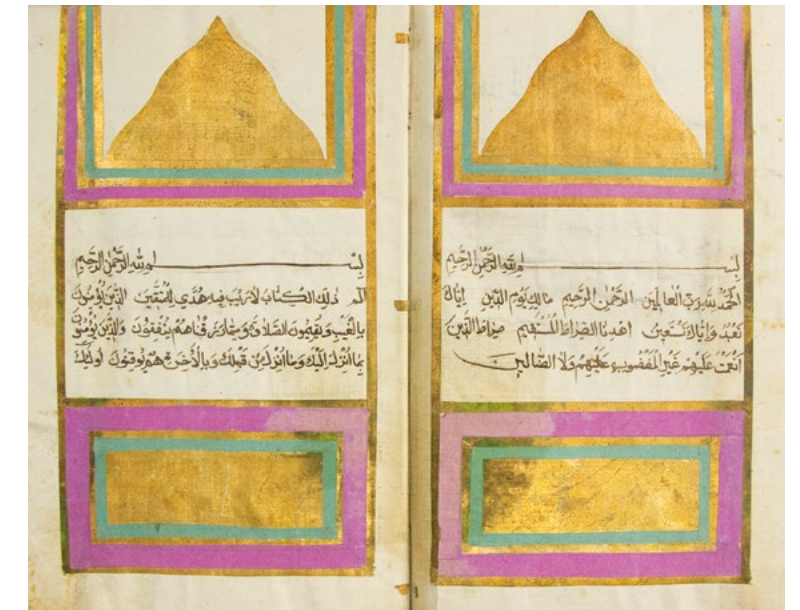 بِسْمِ اللّهِ الرَّحْمٰنِ الرَّحِيمِ
اَلْحَمْدُ للّهِ رَبِّ الْعَالَمِينَ الرَّحْمٰنِ الرَّحِيمِ مَالِكِ يَوْمِ الدِّينِ اِيَّاكَ
نَعْبُدُ وَاِيَّاكَ نَسْتَعِينُ اِهْدِنَا الصِّرَاطَ الْمُسْتَقِيمَ صِرَاطَ الَّذِينَ
اَنْعَمْتَ عَلَيْهِمْ غَيْرِ الْمَغْضُوبِ عَلَيْهِمْ وَلَا الضَّالِّينَ
بِسْمِ اللّهِ الرَّحْمٰنِ الرَّحِيمِ
الٓم ذٰلِكَ الْكِتَابُ لَا رَيْبَ فِيهِ هُدًى لِلْمُتَّقِينَ الَّذِينَ يُؤْمِنُونَ
بِالْغَيْبِ وَيُقِيمُونَ الصَّلَاةَ وَمِمَّا رَزَقْنَاهُمْ يُنْفِقُونَ وَالَّذِينَ يُؤْمِنُونَ
بِمَا اُنْزِلَ اِلَيْكَ وَمَا اُنْزِلَ مِنْ قَبْلِكَ وَبِالْاٰخِرَةِ هُمْ يُوقِنُونَ اُولٰئِكَ